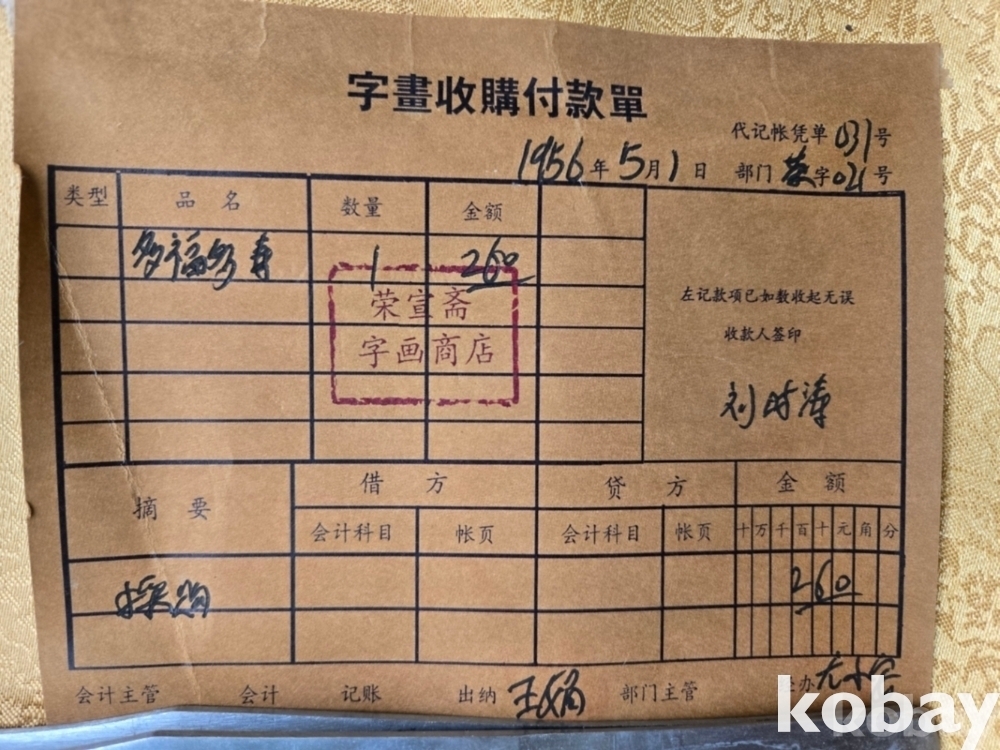 字畫收購付款單
代记帐凭单031号
1956年5月1日 部门 荣字021号
类型 品名 数量 金额
多福多寿 1 260
荣宣斋
字画商店
左记款项已如数收起无误
收款人签印
刘时涛
摘要 借方 贷方 金额
会计科目 帐页 会计科目 帐页 十万千百十元角分
采购 260
会计主管 会计 记账 出纳 部门主管
kobay